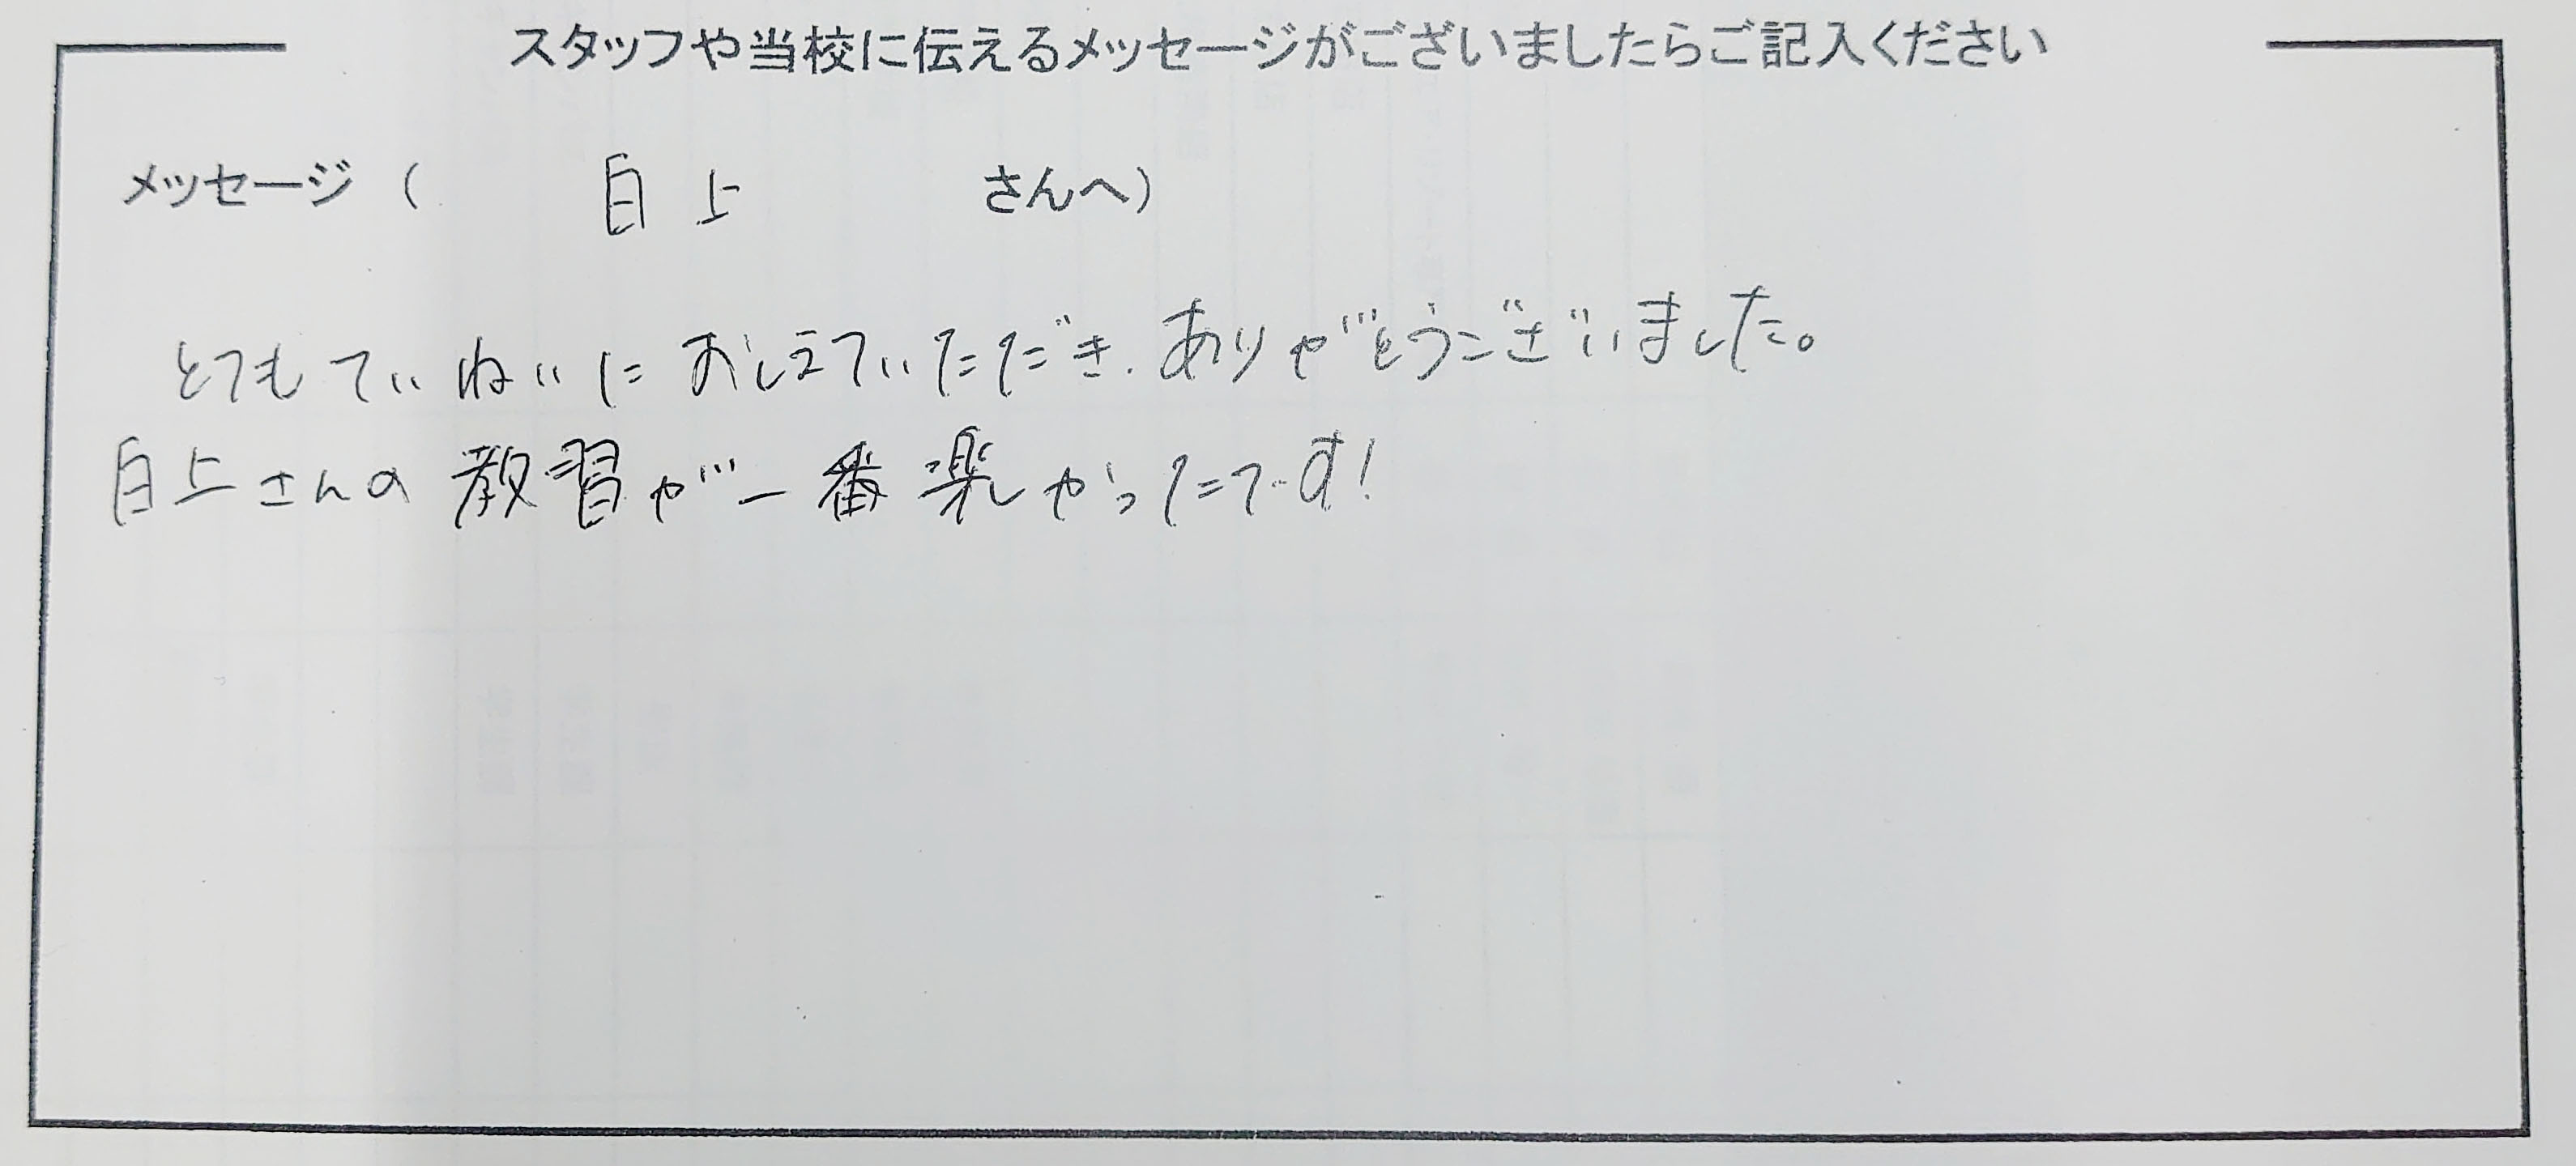 スタッフや当校に伝えるメッセージがございましたらご記入ください
メッセージ ( 白上 さんへ)
とてもていねいにおしえていただき、ありがとうございました。
白上さんの教習が一番楽しかったです!